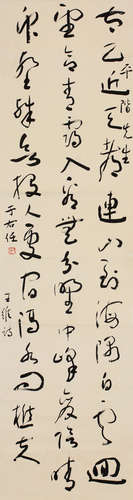 平階先生
太乙近天都連山到海隅白雲迴
望合青靄入看無分野中峰變陰晴
眾壑殊欲投人處宿隔水問樵夫
王維詩
于右任